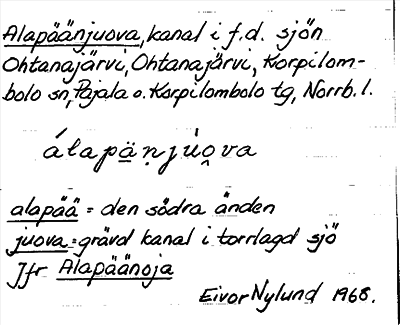 Alapäänjuova, kanal i f.d. sjön
Ohtanajärvi, Ohtanajärvi, Korpilom-
bolo sn, Pajala o. Korpilombolo tg, Norrb. l.
álapä̲n̤júo̯va
alapää = den södra änden
juova = grävd kanal i torrlagd sjö
Jfr Alapäänoja
Eivor Nylund 1968.